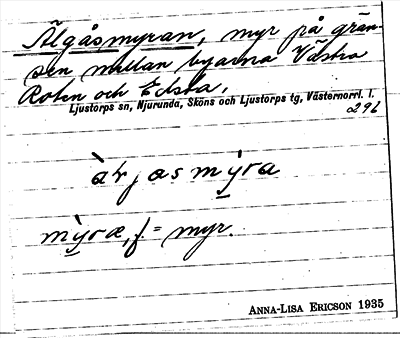 Älgåsmyran, myr på grän-
sen mellan byarna Västra
Roten och Edsta.
Ljustorps sn, Njurunda, Sköns och Ljustorps tg, Västernorrl. l.
296
mỳra, f. = myr.
ANNA-LISA ERICSON 1935